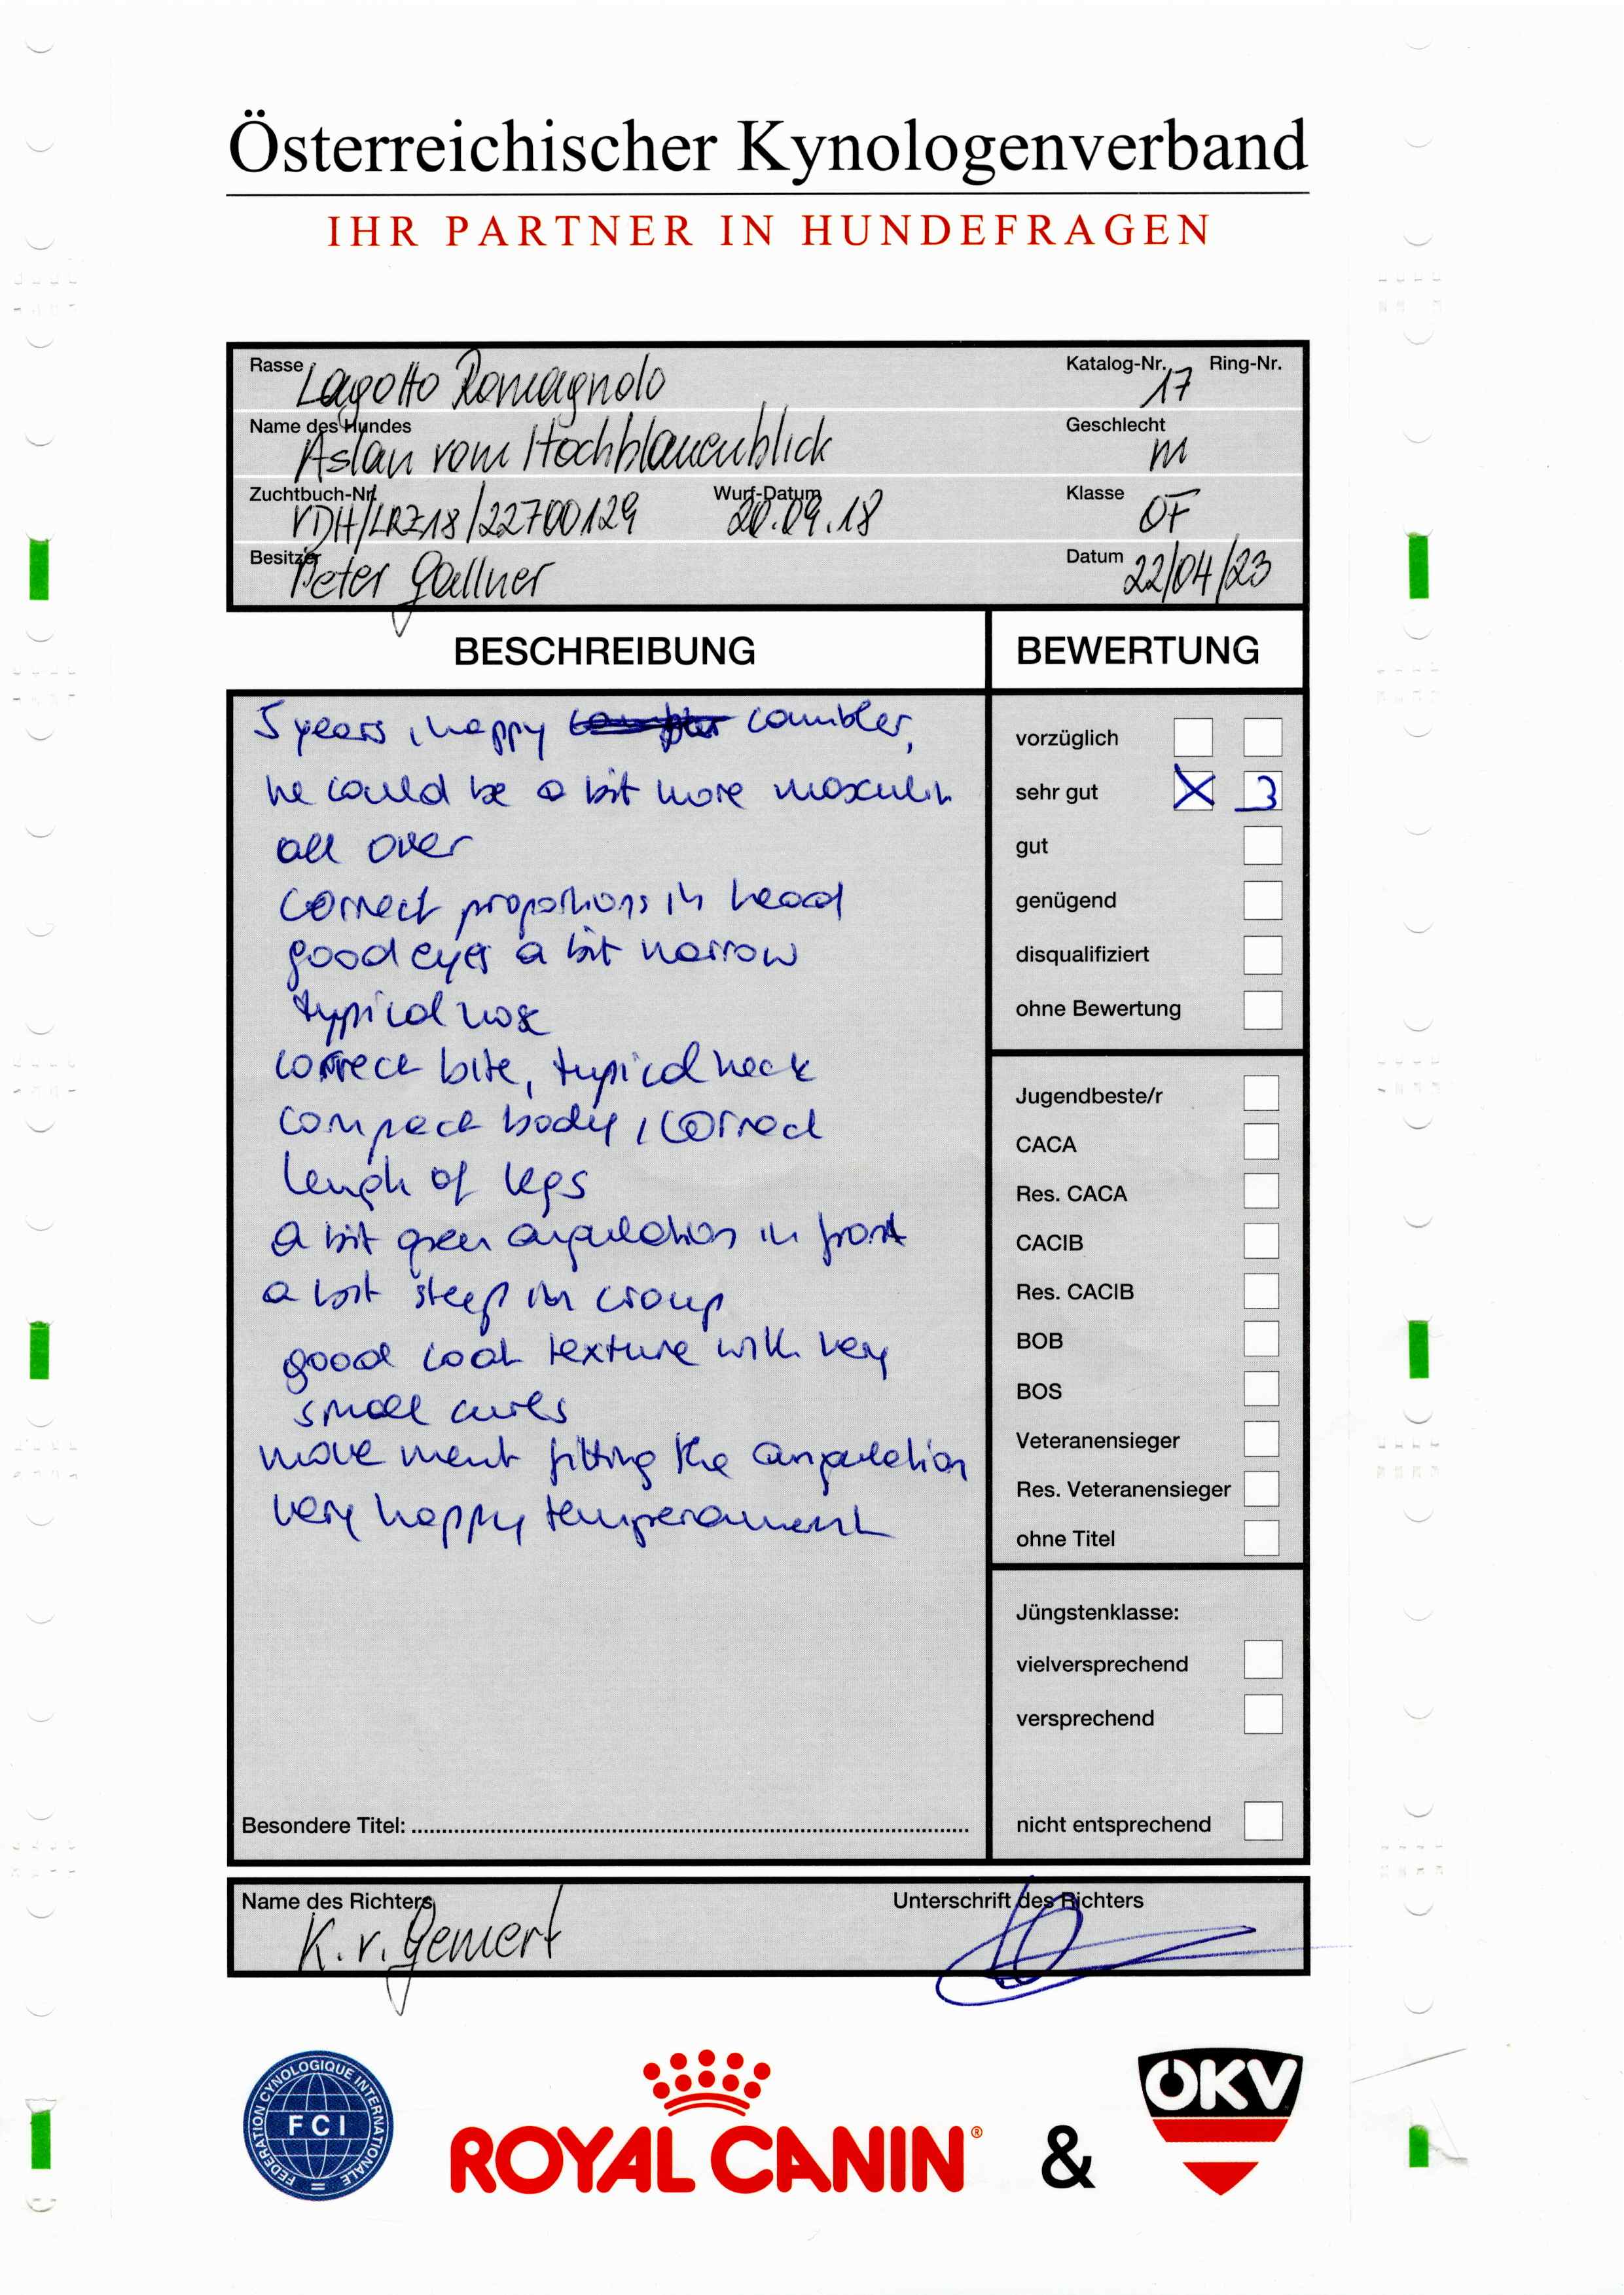 Österreichischer Kynologenverband
IHR PARTNER IN HUNDEFRAGEN
Rasse Lagotto Romagnolo Katalog-Nr. 17 Ring-Nr.
Name des Hundes Aslan vom Hochblauenblick Geschlecht m
Zuchtbuch-Nr. VDH/LRZ18/22700129 Wurf-Datum 20.09.18 Klasse OF
Besitzer Peter Gallner Datum 22/04/23
BESCHREIBUNG
5 years, happy
he could be a bit more masculin
all over
correct proportions in head
good eyes a bit narrow
typical nose
correct bite, typical neck
compact body, correct
lengh of legs
a bit angulation in front
a bit steep in croup
good coat texture with very
small curls
movement fitting the angulation
very happy temperament
Besondere Titel:
BEWERTUNG
vorzüglich
sehr gut X 3
gut
genügend
disqualifiziert
ohne Bewertung
Jugendbeste/r
CACA
Res. CACA
CACIB
Res. CACIB
BOB
BOS
Veteranensieger
Res. Veteranensieger
ohne Titel
Jüngstenklasse:
vielversprechend
versprechend
nicht entsprechend
Name des Richters K. v. Gemert Unterschrift des Richters
FEDERATION CYNOLOGIQUE INTERNATIONALE
FCI
ROYAL CANIN® & ÖKV